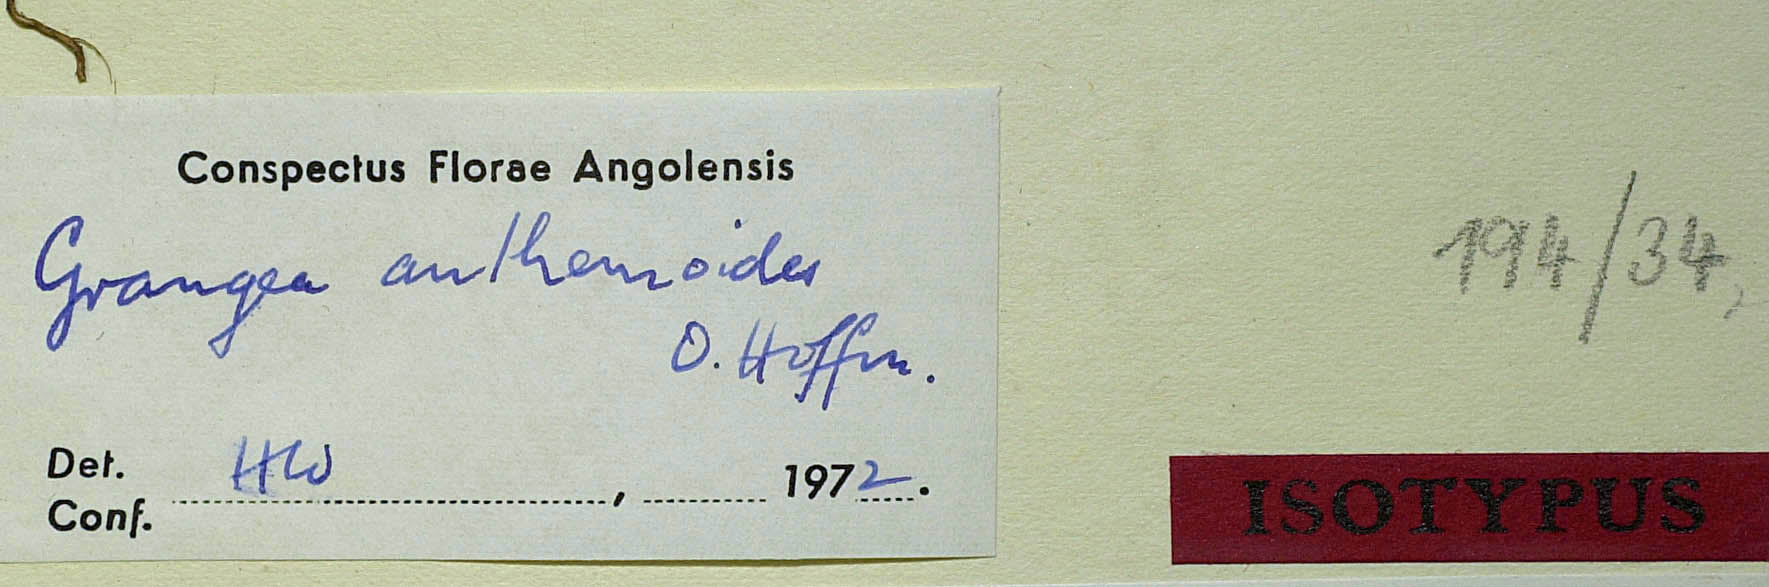 Conspectus Florae Angolensis
Grangea anthemoides
O. Hoffm.
Det. HW
Conf. , 1972.
194/34,
ISOTYPUS